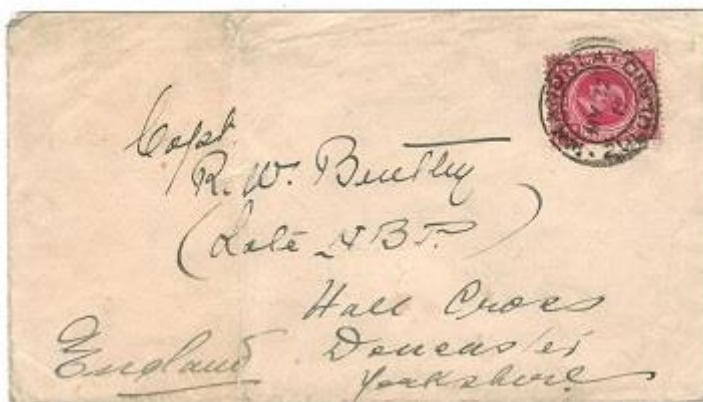 Capt.
R. W. Bentley
(Late N B P.)
Hall Cross
Doncaster
Yorkshire
England